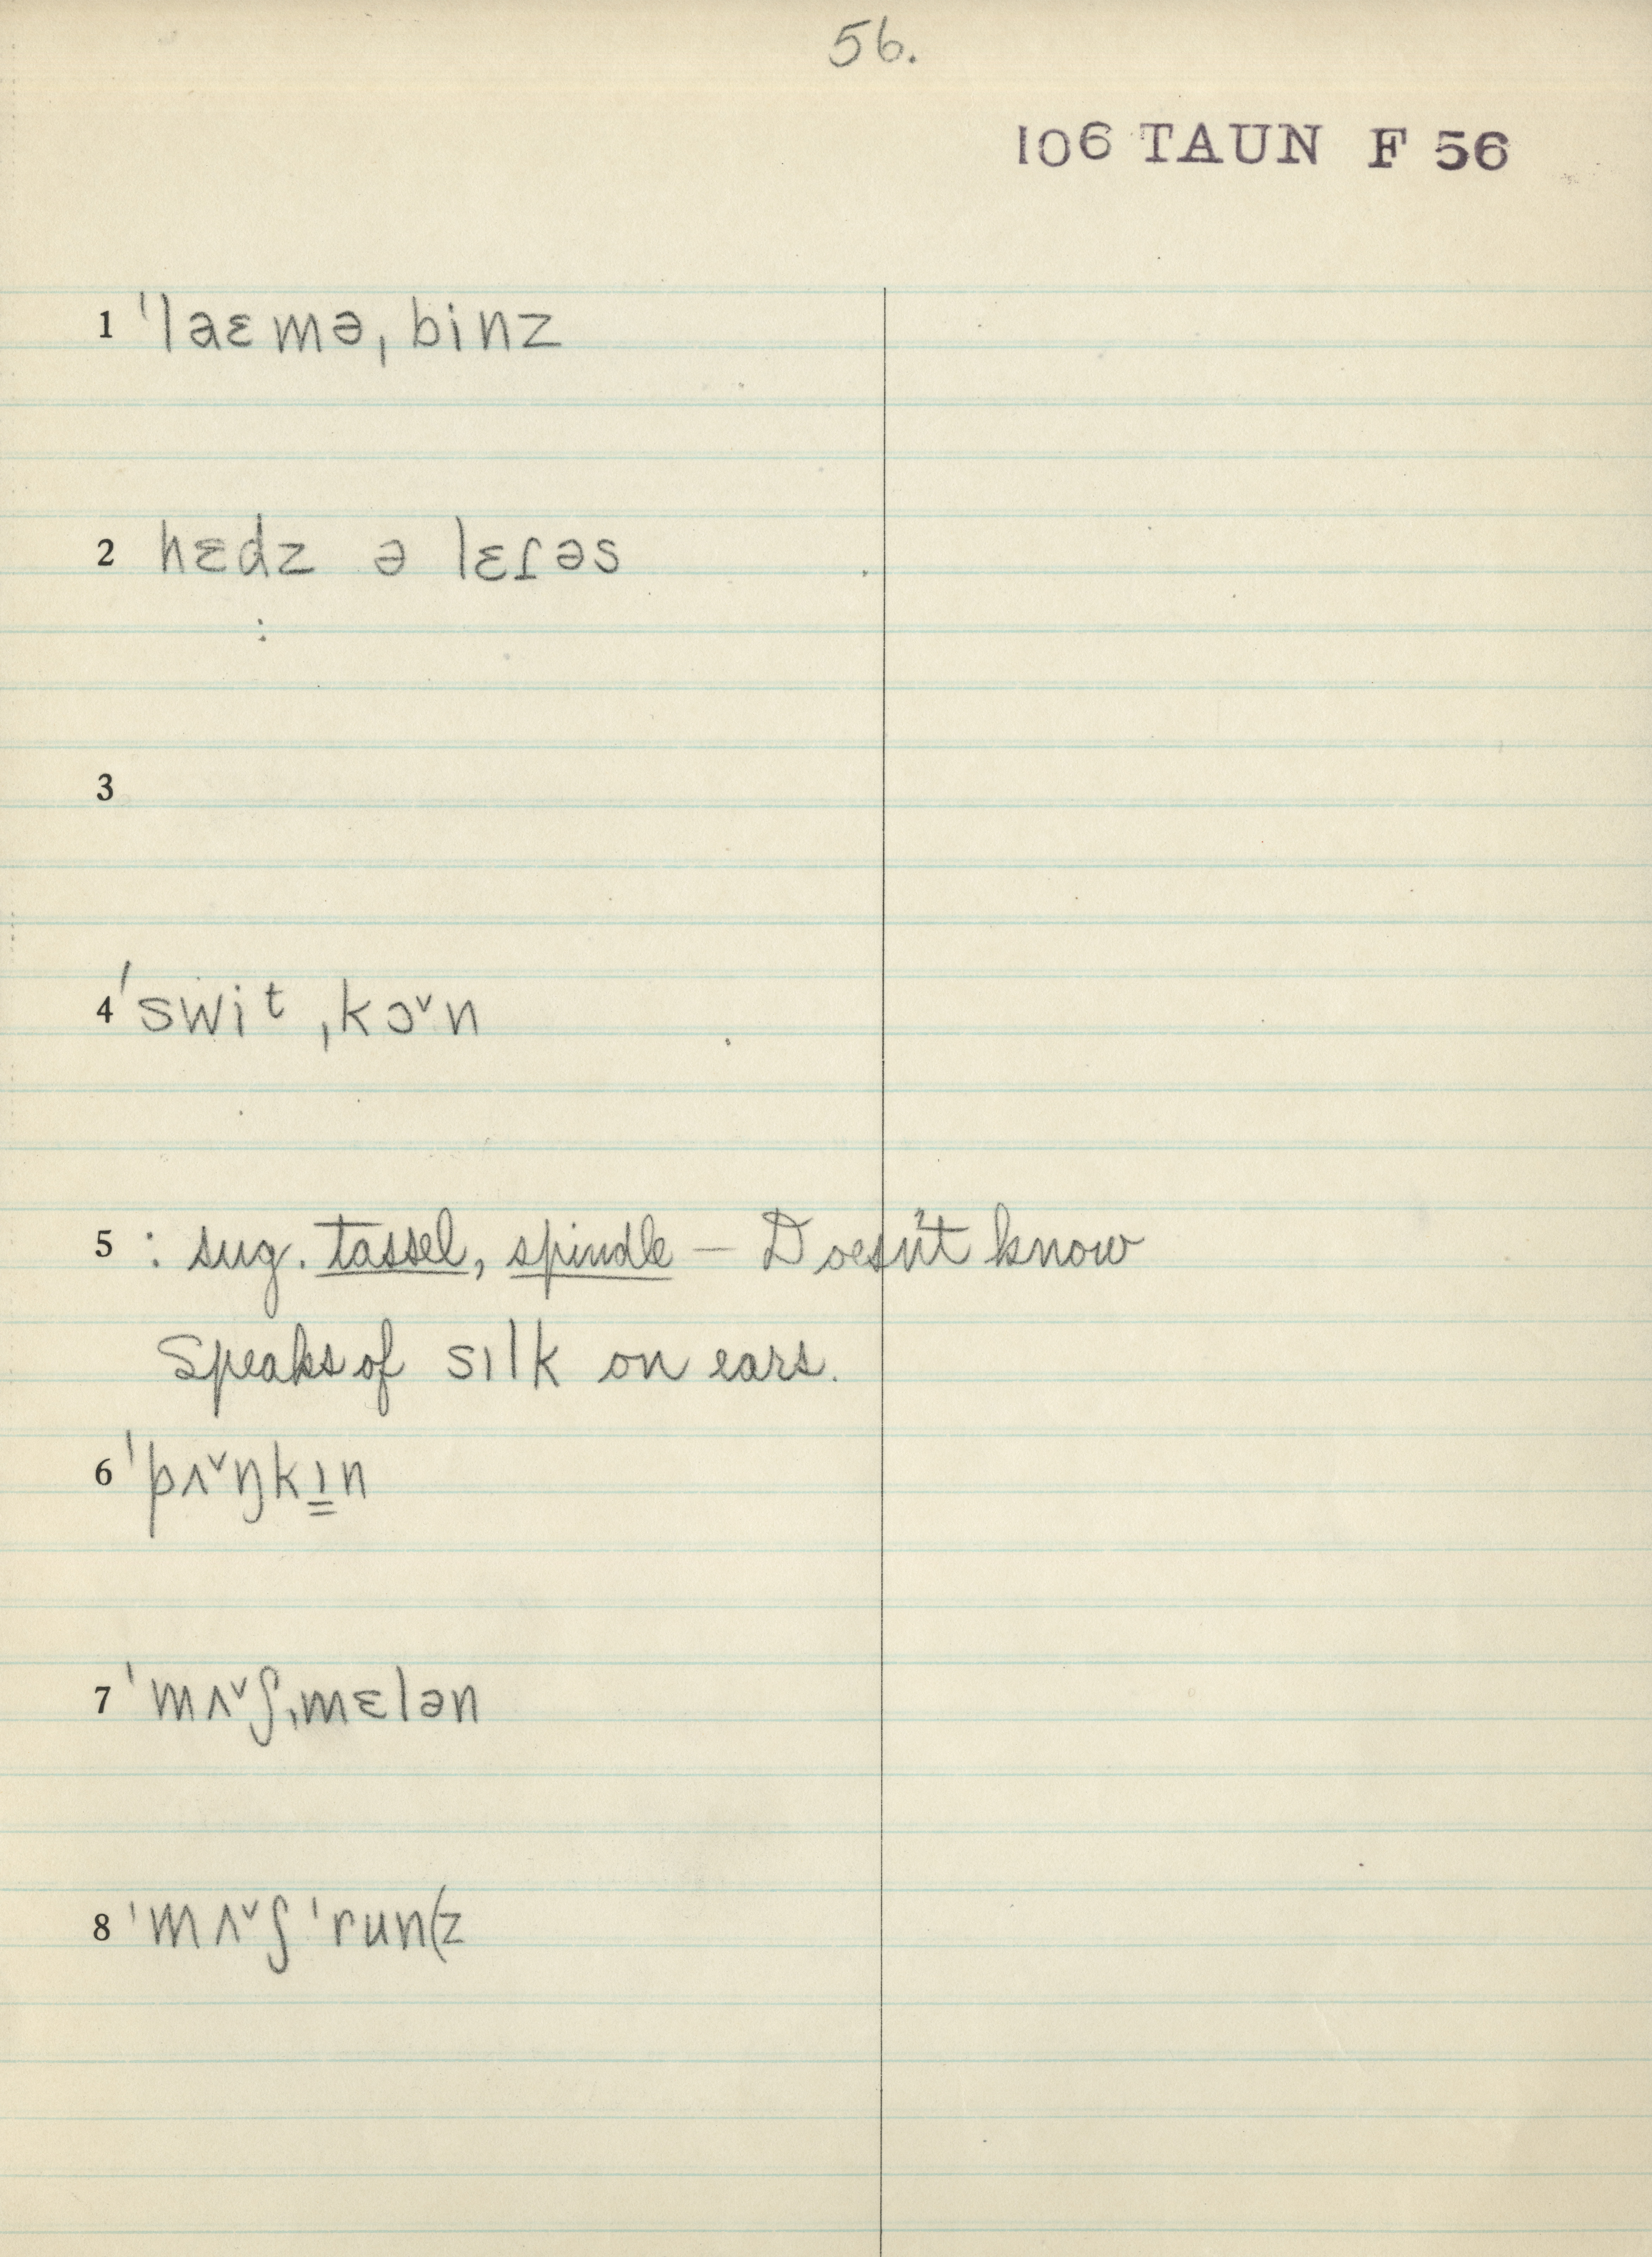 56.
106 TAUN F 56
1 ˈlaɛmə ˌbinz
2 hɛdz ə lɛɾəs
:
3
4 ˈswiᵗ ˌkɔ˅n
5 : sug. tassel, spindle — Doesn't know
Speaks of sɪlk on ears.
6 ˈpʌ˅ŋkɪ̳n
7 ˈmʌ˅ʃˌmɛlən
8 ˈmʌ˅ʃˈrun(z